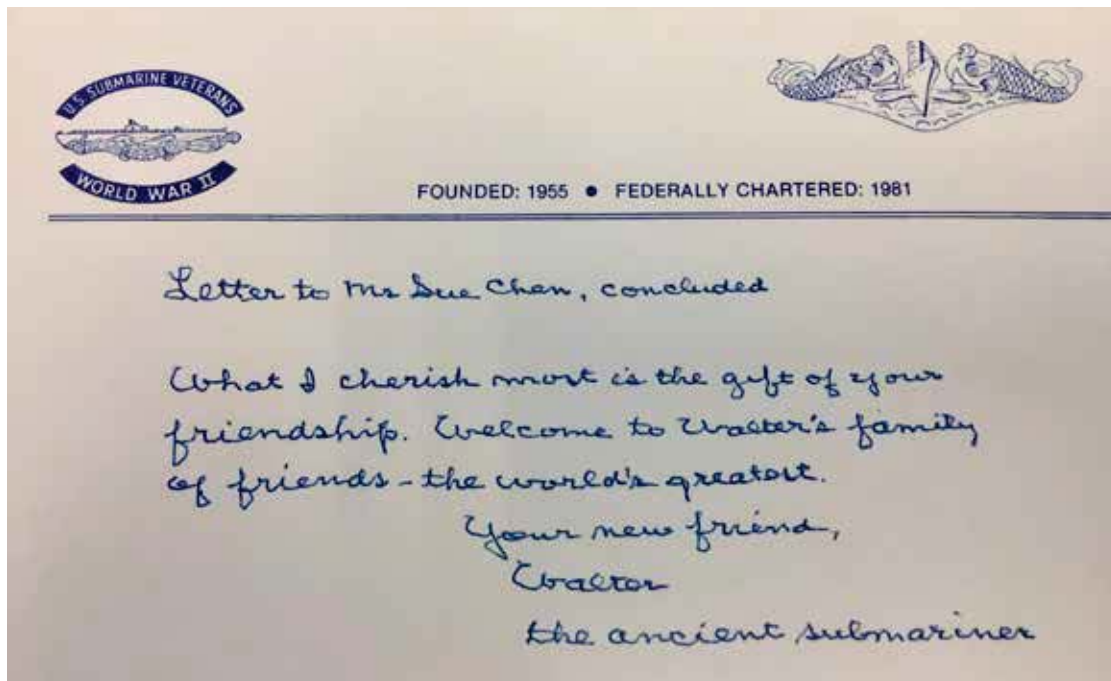 U.S. SUBMARINE VETERANS
WORLD WAR II
FOUNDED: 1955 ● FEDERALLY CHARTERED: 1981
Letter to Ms Sue Chen, concluded
What I cherish most is the gift of your
friendship. Welcome to Walter's family
of friends - the world's greatest.
Your new friend,
Walter
the ancient submariner